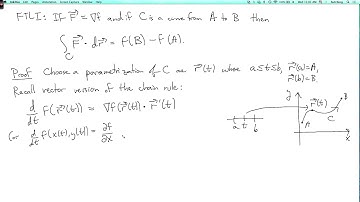 FTLI: If F = ∇f and if C is a curve from A to B then
∫_C F · dr = f(B) − f(A).
Proof Choose a parametrization of C as r(t) where a≤t≤b, r(a)=A,
r(b)=B.
Recall vector version of the chain rule:
d/dt f(r(t)) = ∇f(r(t)) · r'(t)
(or d/dt f(x(t),y(t)) = ∂f/∂x
y
r(t)
B
C
A
a t b
x